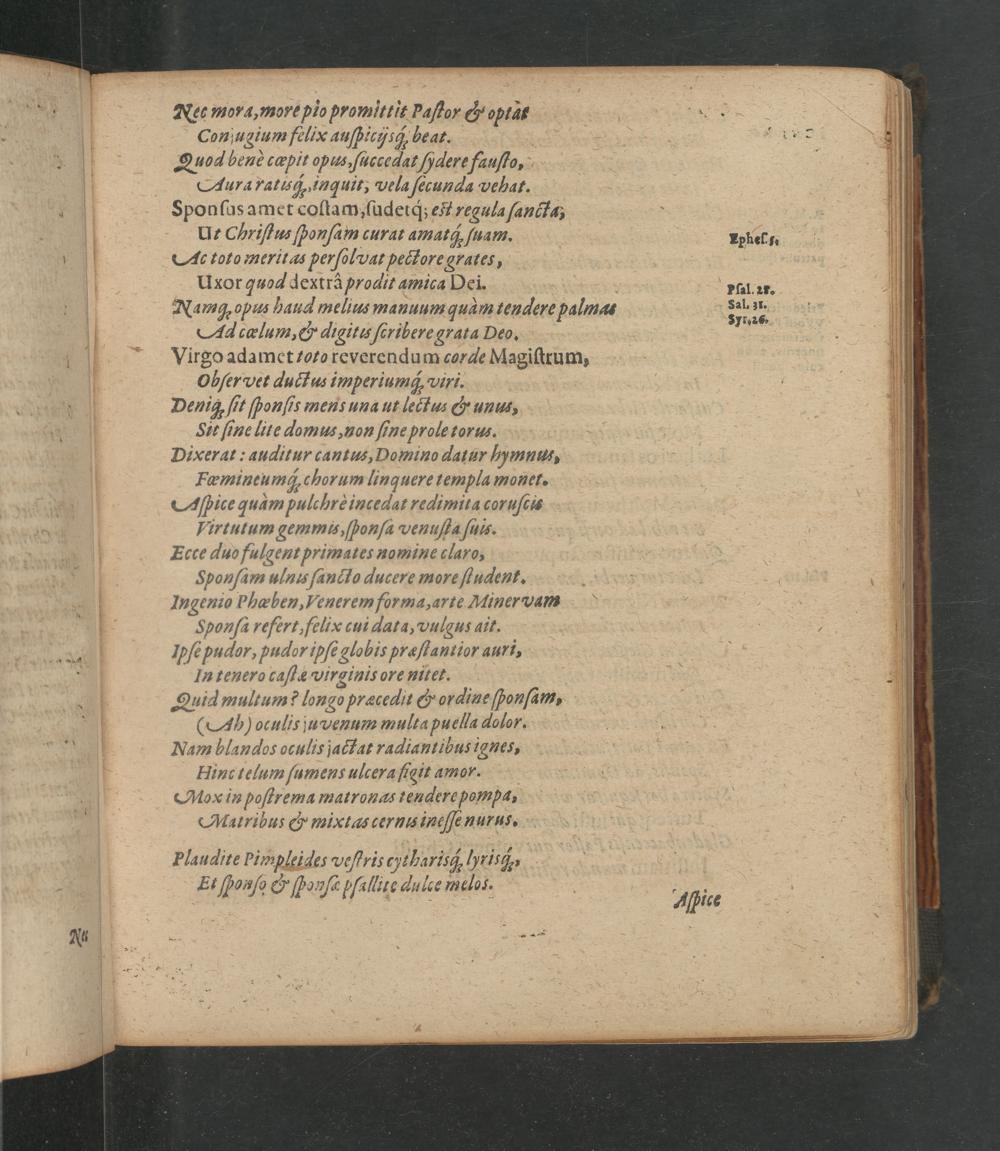 Nec mora, more pio promittit Paſtor & optat
Conjugium felix auſpicijsq́; beat.
Quod benè cœpit opus, ſuccedat ſydere fauſto,
Aura ratisq́;, inquit, vela ſecunda vehat.
Sponſus amet coſtam, ſudetq́; est regula ſancta,
Ut Chriſtus ſponſam curat amatq́; ſuam.
Epheſ. 5.
Ac toto meritas perſolvat pectore grates,
Uxor quod dextrâ prodit amica Dei.
Pſal. 28.
Namq; opus haud melius manuum quàm tendere palmas
Sal. 31.
Syr. 26.
Ad cœlum, & digitis ſcribere grata Deo.
Virgo adamet toto reverendum corde Magiſtrum,
Obſervet ductus imperiumq́; viri.
Deniq; ſit ſponſis mens una ut lectus & unus,
Sit ſine lite domus, non ſine prole torus.
Dixerat: auditur cantus, Domino datur hymnus,
Fœmineumq́; chorum linquere templa monet.
Aſpice quàm pulchrè incedat redimita coruſcis
Virtutum gemmis, ſponſa venuſta ſuis.
Ecce duo fulgent primates nomine claro,
Sponſam ulnis ſancto ducere more ſtudent.
Ingenio Phœben, Venerem forma, arte Minervam
Sponſa refert, felix cui data, vulgus ait.
Ipſe pudor, pudor ipſe globis præſtantior auri,
In tenero caſtæ virginis ore nitet.
Quid multum? longo præcedit & ordine ſponſam,
(Ah) oculis juvenum multa puella dolor.
Nam blandos oculis jactat radiantibus ignes,
Hinc telum ſumens ulcera figit amor.
Mox in poſtrema matronas tendere pompa,
Matribus & mixtas cernis ineſſe nurus.
Plaudite Pimpleides veſtris cytharisq́; lyrisq́;,
Et ſponſo & ſponſæ pſallite dulce melos.
Aſpice